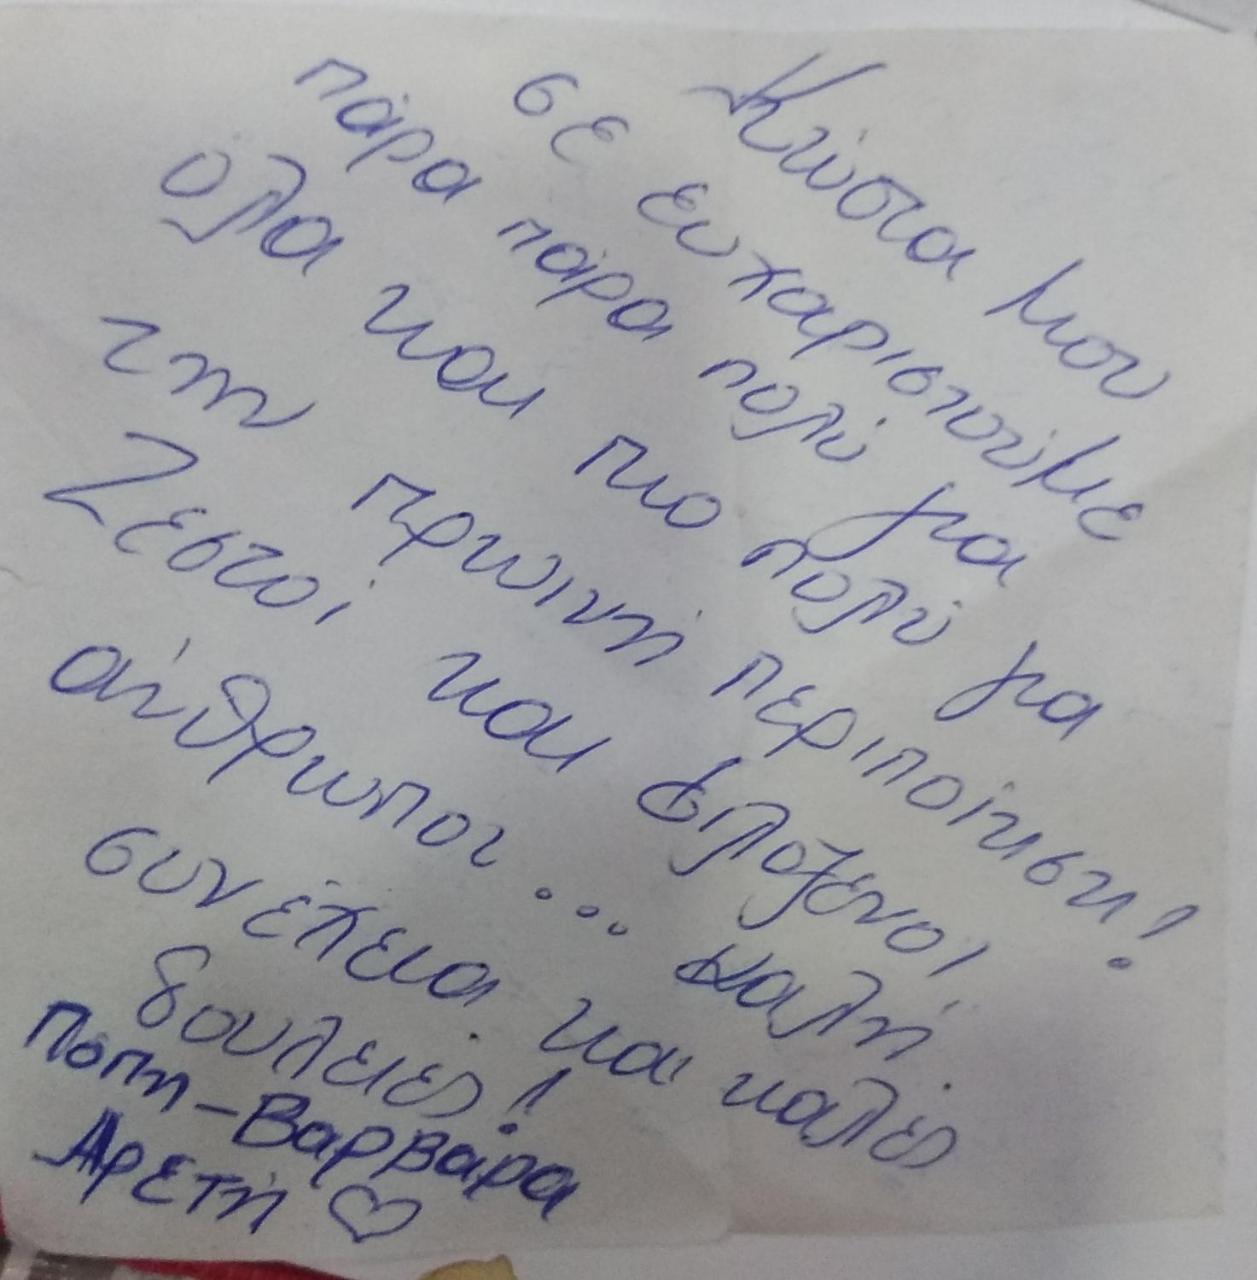 Κώστα μου
σε ευχαριστούμε
πάρα πάρα πολύ για
όλα και πιο πολύ για
την πρωινή περιποίηση!
Ζεστοί και φιλόξενοι
άνθρωποι... καλή
συνέχεια και καλές
δουλειές!
Πόπη - Βαρβάρα
Αρετή ♡